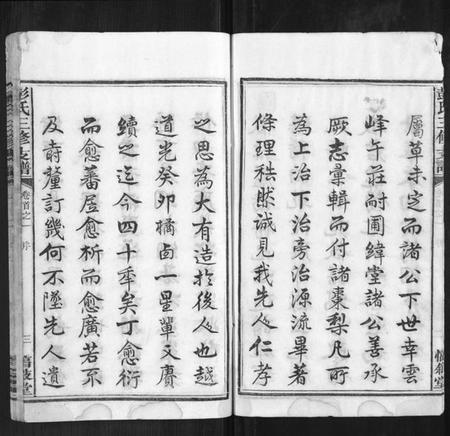 屬草未定而諸公下世幸雲
峰午莊耐圃緯堂諸公善承
厥志彙輯而付諸棗梨凡所
為上治下治旁治源流畢著
條理秩然誠見我先人仁孝
之思為大有造於後人也越
道光癸卯橘卤一星輩又賡
續之迄今四十年矣丁愈衍
而愈蕃居愈析而愈廣若不
及時釐訂幾何不墜先人遺
彭氏三修支譜
卷首之一 序
三